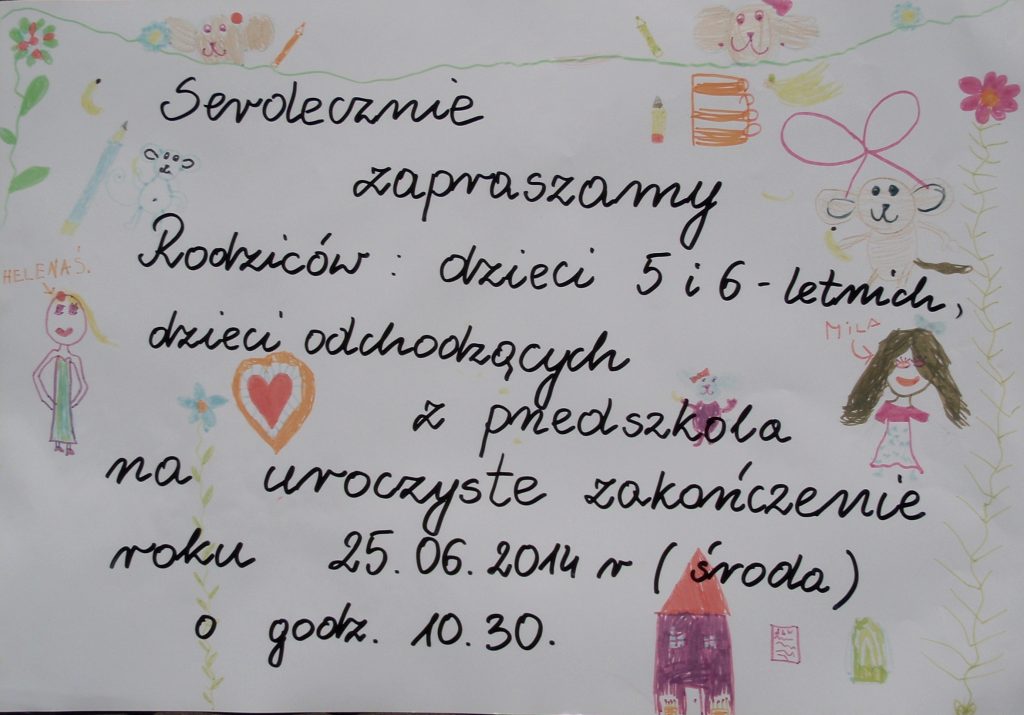 Serdecznie
zapraszamy
Rodziców: dzieci 5 i 6-letnich,
dzieci odchodzących
z przedszkola
na uroczyste zakończenie
roku 25.06.2014 r (środa)
o godz. 10.30.
HELENA Ś.
MILA